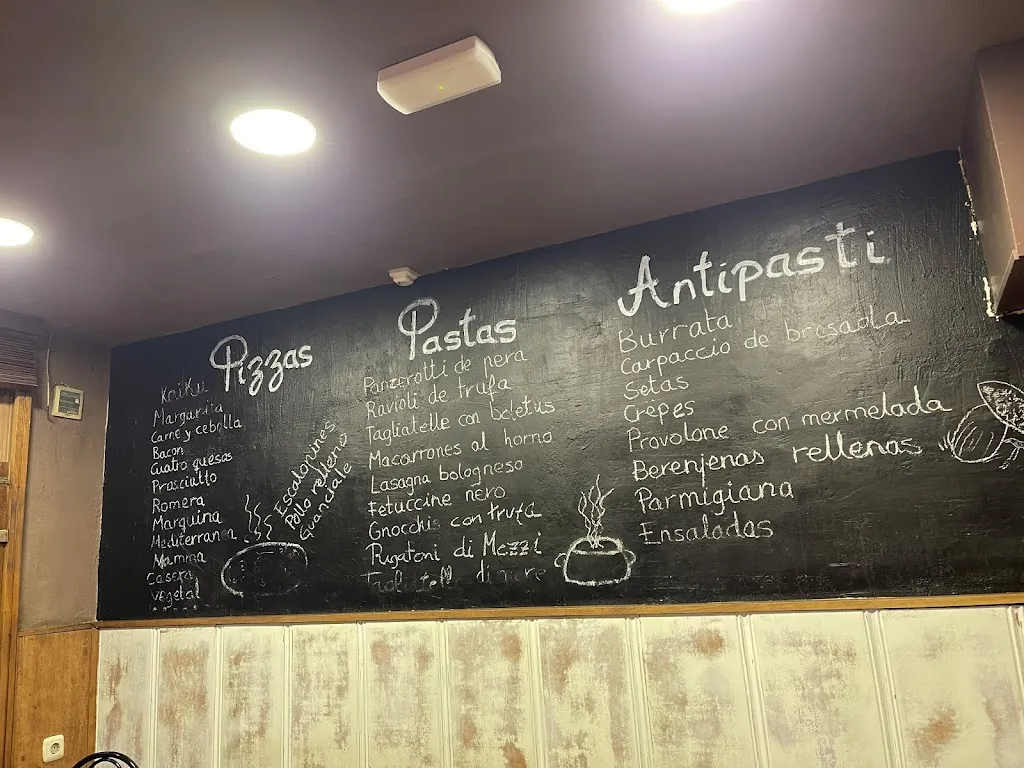 Pizzas
KaiKu
Margarita
Carne y cebolla
Bacon
Cuatro quesos
Prosciutto
Romera
Marquina
Mediterranea
Mamma
Casera
Vegetal
Escalopines
Pollo relleno
Guanciale
Pastas
Panzerotti de pera
Ravioli de trufa
Tagliatelle con boletus
Macarrones al horno
Lasagna bolognesa
Fetuccine nero
Gnocchis con trufa
Rigatoni di Mezzi
Antipasti
Burrata
Carpaccio de bresaola
Setas
Crêpes
Provolone con mermelada
Berenjenas rellenas
Parmigiana
Ensaladas